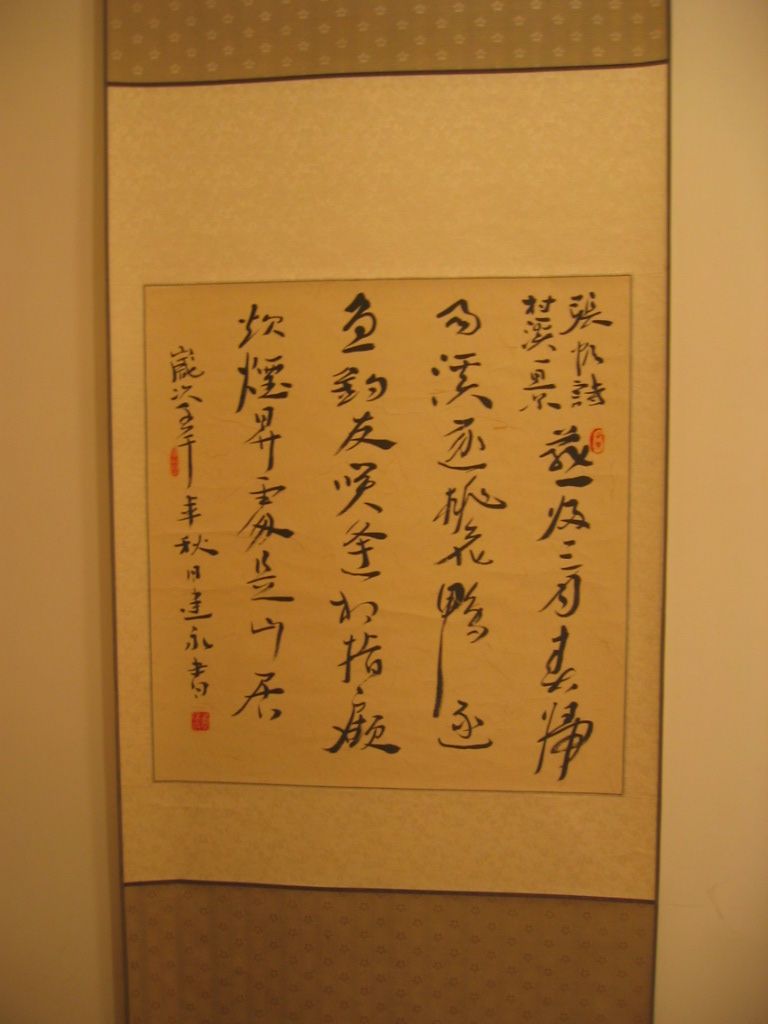 張詩
村溪一景
三月春歸
雨溪桃花鴨逐
魚釣友笑逢相指顧
炊煙昇處是山居
歲次壬午年秋日建永書